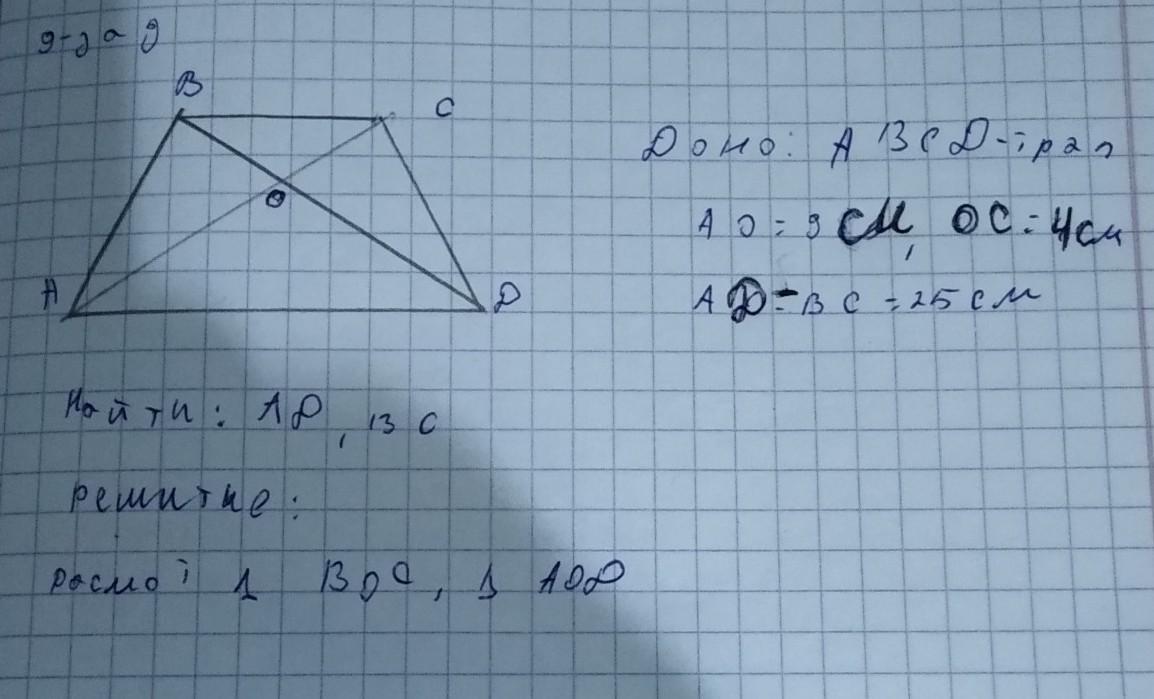 9-зад
B
C
O
A
D
Доно: ABCD-трап
AO = 9 см, OC = 4 см
AD - BC = 25 см
Найти: AD, BC
решитие:
росмот Δ BOC, Δ AOD